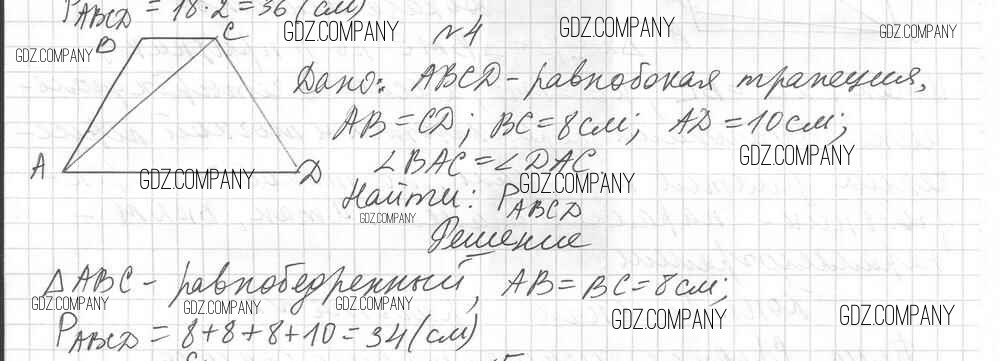 P_ABCD = 18·2 = 36 (см)
GDZ.COMPANY GDZ.COMPANY GDZ.COMPANY
B C №4
GDZ.COMPANY
Дано: ABCD - равнобокая трапеция,
AB = CD; BC = 8 см; AD = 10 см;
GDZ.COMPANY
∠BAC = ∠DAC
A D
GDZ.COMPANY GDZ.COMPANY
Найти: P_ABCD
GDZ.COMPANY
Решение
ΔABC - равнобедренный, AB = BC = 8 см;
GDZ.COMPANY GDZ.COMPANY GDZ.COMPANY
GDZ.COMPANY GDZ.COMPANY
P_ABCD = 8+8+8+10 = 34 (см)